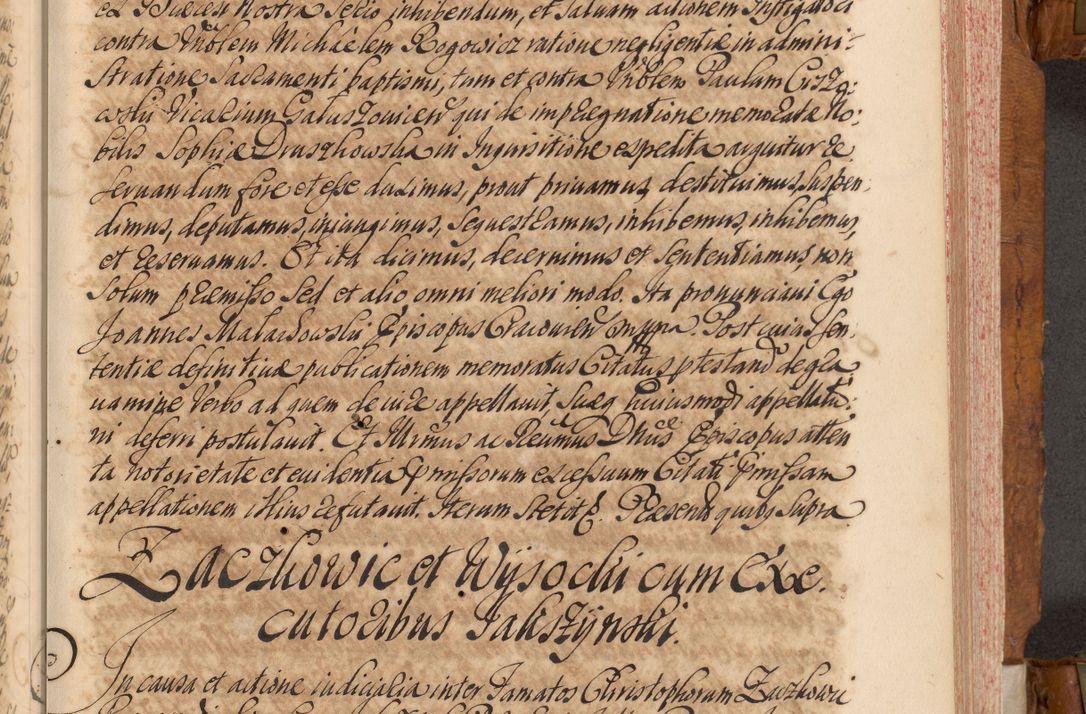 ex Diœcesi Nostra Secio inhibendum, et Saluam actionem Instigatori
contra Vnoblem Michaelem Rogowicz ratione negligentiæ in admini-
stratione Sacramenti baptismi, tum et contra Vnoblem Paulum
Vicarium qui de imprægnatione memoratæ No:
bilis Sophiæ Druszkowska in Inquisitione expedita arguitur re
seruandum fore et esse duximus, prout priuamus, destituimus, suspen:
dimus, deputamus, iniungimus, Sequestramus, inhibemus, inhibemus,
et reseruamus. Et ita dicimus, decernimus et Sententiamus, non
Solum præmisso Sed et alio omni meliori modo. Ita pronunciaui Ego
Joannes Małachowski Episcopus Cracouien mppa. Post cuius Sen-
tentiæ definitiuæ publicationem memoratus Citatus ptestand de gra
uamine Verbo ad quem de iure appellauit, Suæq huiusmodi appellatio:
ni deferri postulauit. Et Illrmus ac Reumus Dnus Episcopus atten
ta notorietate et euidentia pmissorum excessuum Citati pmissam
appellationem illius refutauit. Iterum Stetit. Præsentib quibus Supra
Zaczkowic et Wÿsocki cum Exe.
cutoribus Jakszÿnski.
In causa et actione iudicialia inter Famatos Christophorum Zaczkowic